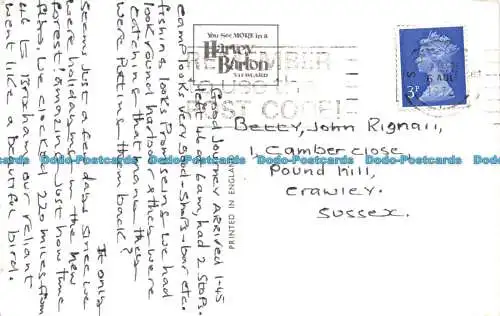 Good journey arrived 1-45
left 46 at 6 am, had 2 stops.
camp looks very good - shops - bar etc.
fishing looks promising we had
look round harbour & they were
catching that many they
were putting them back?
It only
seems just a few days since we
were holidayment in the New
Forest! amazing just how time
flies, we clocked 220 miles from
46 to Brixham our reliant
went like a beautiful bird.
You See MORE in a
Harvey
Barton
VIEWCARD
REMEMBER
to use the
POST CODE!
3P
PRINTED IN ENGLAND
Betty, John Rignall,
1, Camber close
Pound Hill,
Crawley.
Sussex.
Dodo-Postcards Dodo-Postcards Dodo-Postcards Dodo-Postcards Dodo-Postcards Dodo-Postcards